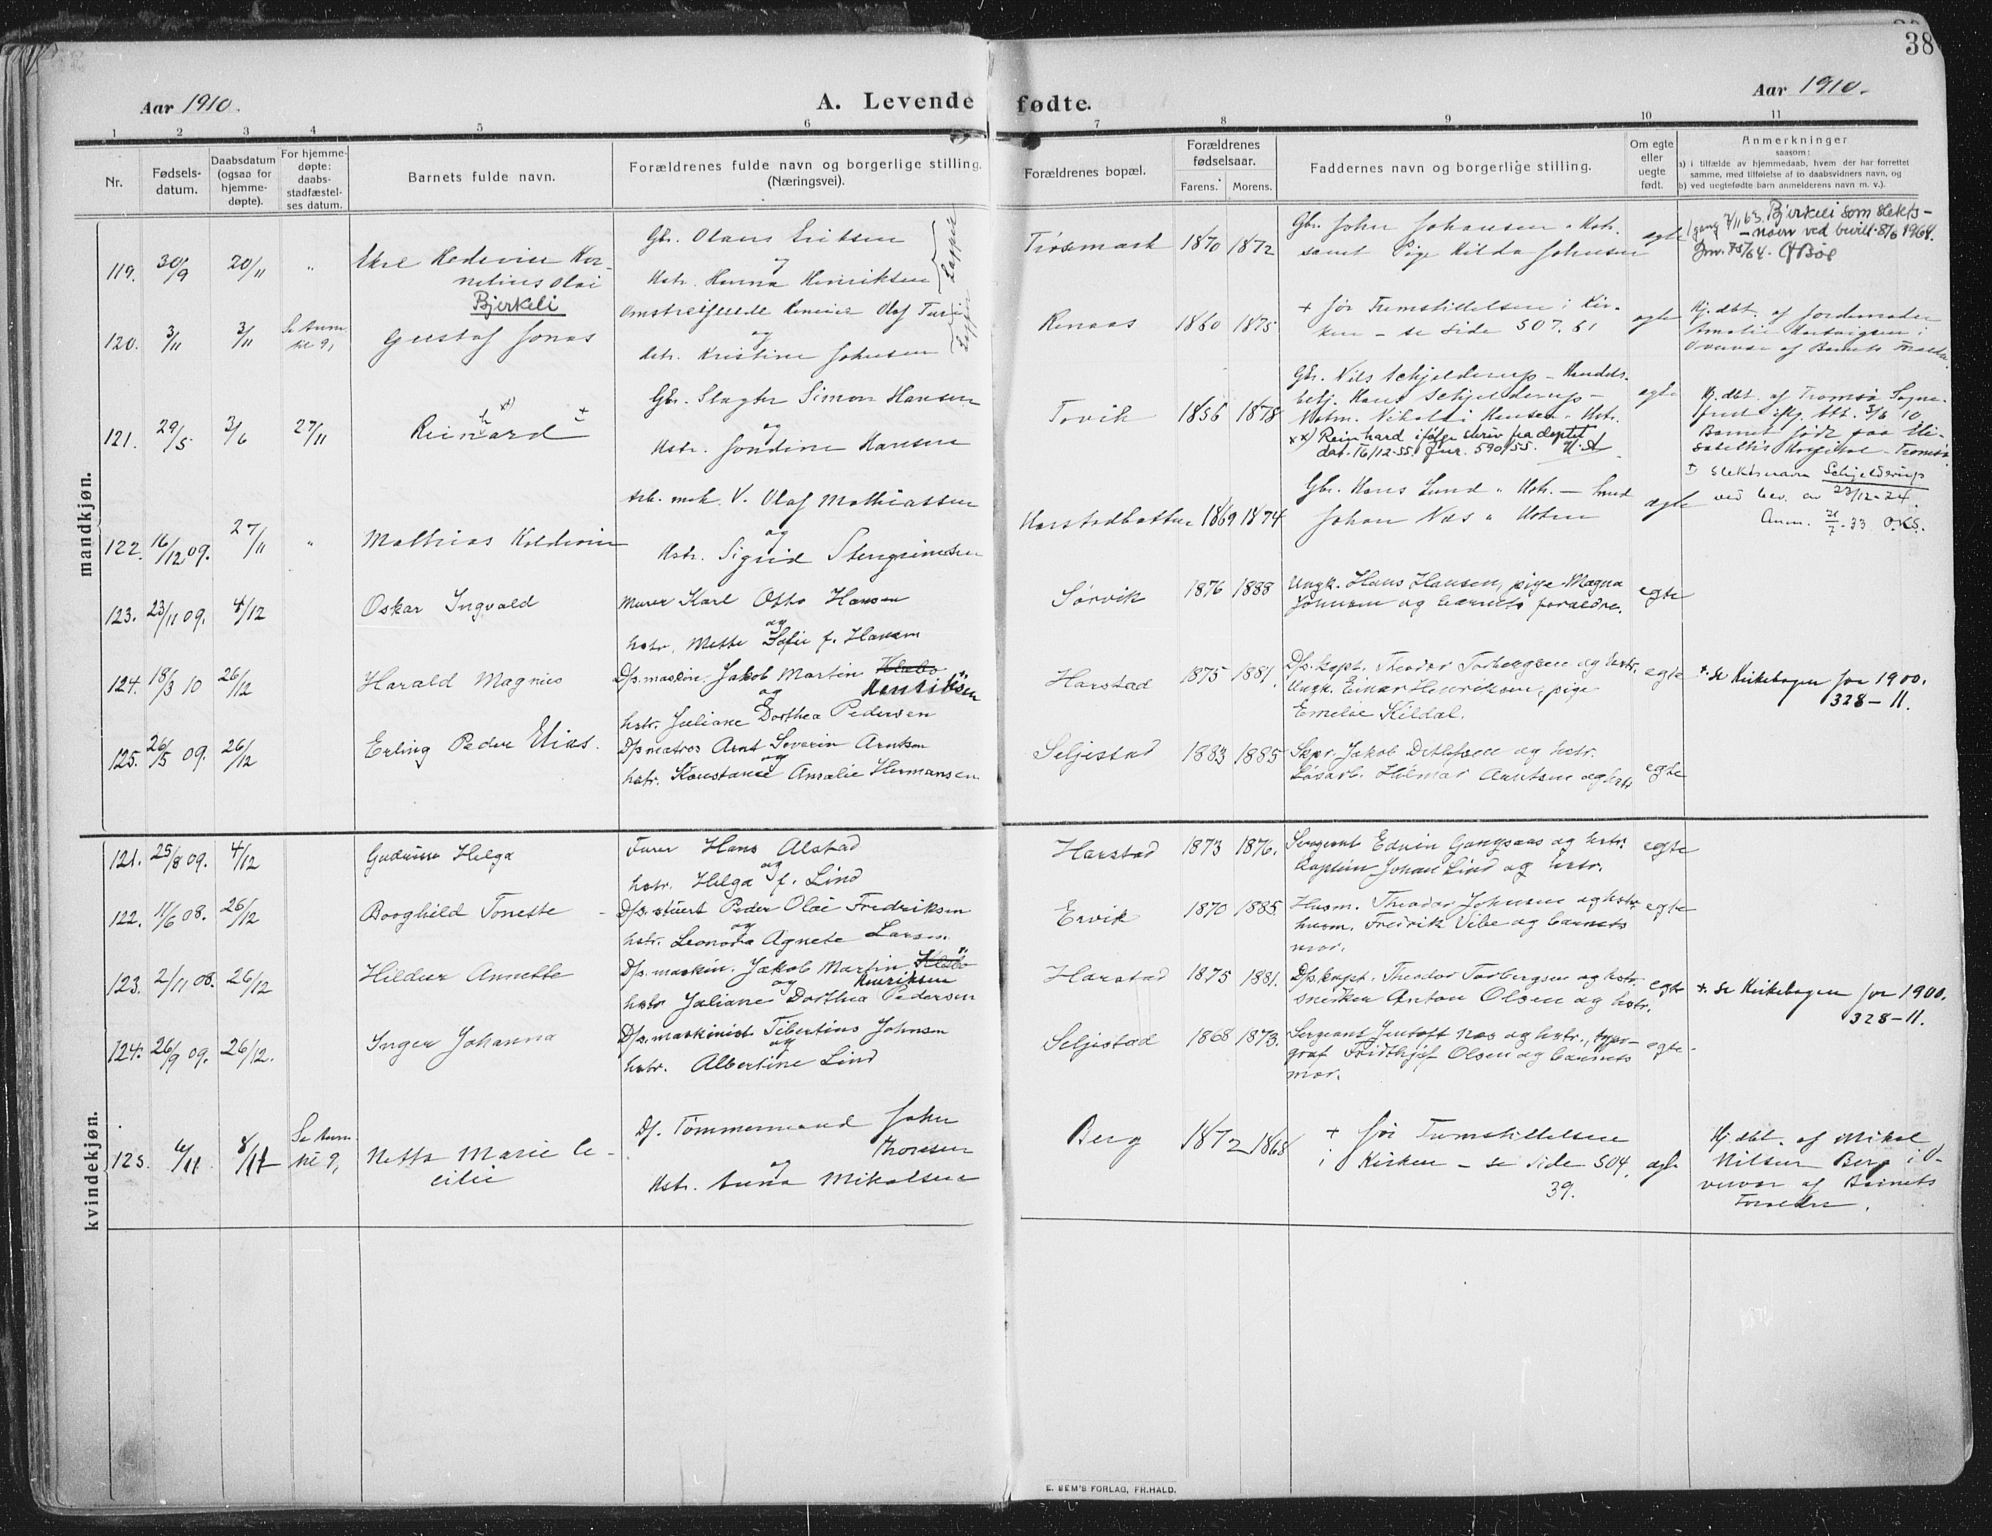 38
Aar 1910.
A. Levende fødte.
Aar 1910.
1 2 3 4 5 6 7 8 9 10 11
Nr.
Fødsels-
datum.
Daabsdatum
(ogsaa for
hjemme-
døpte).
For hjemme-
døpte:
daabs-
stadfæstel-
ses datum.
Barnets fulde navn.
Forældrenes fulde navn og borgerlige stilling.
(Næringsvei).
Forældrenes bopæl.
Forældrenes
fødselsaar.
Farens. Morens.
Faddernes navn og borgerlige stilling.
Om egte
eller
uegte
født.
Anmerkninger
saasom:
a) i tilfælde av hjemmedaab, hvem der har forrettet
samme, med tilføielse af to daabsvidners navn, og
b) ved uegtefødte barn anmelderens navn m. v.).
mandkjøn.
119. 30/9 20/11 "
nelius Olai
Bjerkeli
Gbr. Olaus Eriksen
og
Hstr. Hanna Henriksen
Lapper
1870 1872
Gbr. John Johansen " Hstr.
samt Pige Hilda Johnsen
egte
7/11 63. Bjerkeli som slekts-
navn ved bevill. 8/6 1964.
120. 3/11 3/11
Gustaf Jonas
Omstreifende Olaf
og
Hstr. Kristine Johnsen
Renaas 1860 1875
+ før Fremstillelsen i Kir-
ken – se side 507. 61
egte
Hj.dbt. af Jordemoder
Amalie i
Overvær af Barnets
121. 29/5 3/6 27/11
Reinard
h xx) ±
Gbr. Slagter Simon Hansen
og
Hstr. Jondine Hansen
Tovik 1856 1878
Gbr. Nils Schjelderup – Handels-
betj. Hans Schjelderup –
Nikolai Hansen " Hstr.
xx) Reinhard ifølge skriv fra deptet
dat. 16/12-55. Jnr. 590/55.
egte
Hj.dbt. af Tromsø Sogne-
prest 3/6 10
Barnet født paa Eli-
sabeths Hospital – Tromsø
± slektsnavn Schjelderup
ved bev. av 23/12-24
Anm. 21/7-33 O.K.S.
122. 16/12 09. 27/11 "
Mathias Koldevin
V. Olaf Mathiassen
og
Hstr. Sigrid Stengrimsen
Harstadbotten 1869 1874
Gbr. Hans Lund " Hstr. – Smed
Johan Næs " Hstr.
egte
123. 23/11 09. 4/12
Oskar Ingvald
Murer Karl Otto Hansen
og
hstr. Mette Sofie f. Hansen
Sørvik 1876 1888
Ungk. Hans Hansen, pige Magna
Johnsen og barnets forældre.
egte
124. 18/3 10 26/12
Harald Magnus
Dfs. maskin. Jakob Martin
og Henriksen
hstr. Juliane Dorthea Pedersen
Harstad 1875 1881.
Dfs. kapt. Theodor Torbergsen og hstr.
Ungk. Einar Henriksen, pige
Emelie Kildal.
egte
* se Kirkebogen for 1900.
328–11.
125. 26/5 09. 26/12
Erling Peder Elias.
Dfs matros Arnt Severin Arntsen
og
hstr. Konstanse Amalie Hermansen
Seljestad 1883 1885
Skpr. Jakob Detlefsen og hstr.
Løsarb. Hilmar Arntsen og hstr.
egte
kvindekjøn.
121. 25/8 09. 4/12
Gudrun Helga
Furer Hans Alstad
og
hstr. Helga f. Lind
Harstad 1873 1876.
Sergeant Edvin Gangsaas og hstr.
Kaptein Johan Lind og hstr.
egte
122. 11/6 08. 26/12
Borghild Tonette
Dfs. stuert Peder Olai Fredriksen
og
hstr. Leonora Agnete Larsen
Ervik 1870 1885
Husm. Theodor Johnsen og hstr.
husm. Fredrik Vibe og barnets
mor.
egte
123. 2/11 08. 26/12
Hildur Annette
Dfs. maskin. Jakob Martin
og Henriksen
hstr Juliane Dorthea Pedersen
Harstad 1875 1881.
Dfs. kapt. Theodor Torbergsen og hstr.
snekker Anton Olsen og hstr.
egte
*. se Kirkebogen for 1900.
328–11.
124. 26/9 09. 26/12.
Inger Johanna
Dfs. maskinist Tibertius Johnsen
og
hstr. Albertine Lind
Seljestad 1868 1873.
Sergeant Jentoft Næs og hstr., typo-
graf Fridthjof Olsen og barnets
mor.
egte.
125. 6/11 8/11
Netta Marie Ce-
cilie
Df. Tømmermand John
Thomsen
og
Hstr. Anna Mikalsen
Berg 1872 1868
+ før Fremstillelsen
i Kirken – se side 504.
39.
egte
Hj.dbt. af Mikal
Nilsen Berg i O-
vervær af Barnets
Forældre.
E. SEM'S FORLAG, FR.HALD.